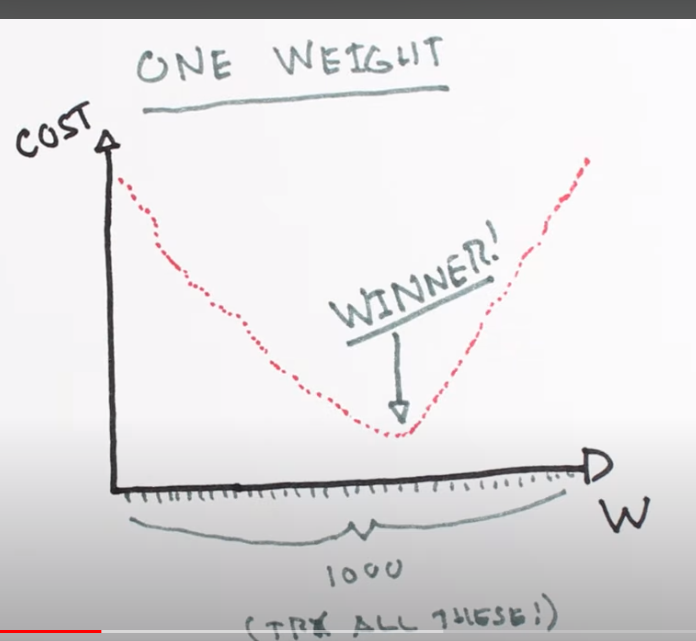 ONE WEIGHT
COST
WINNER!
W
1000
(TRY ALL THESE!)